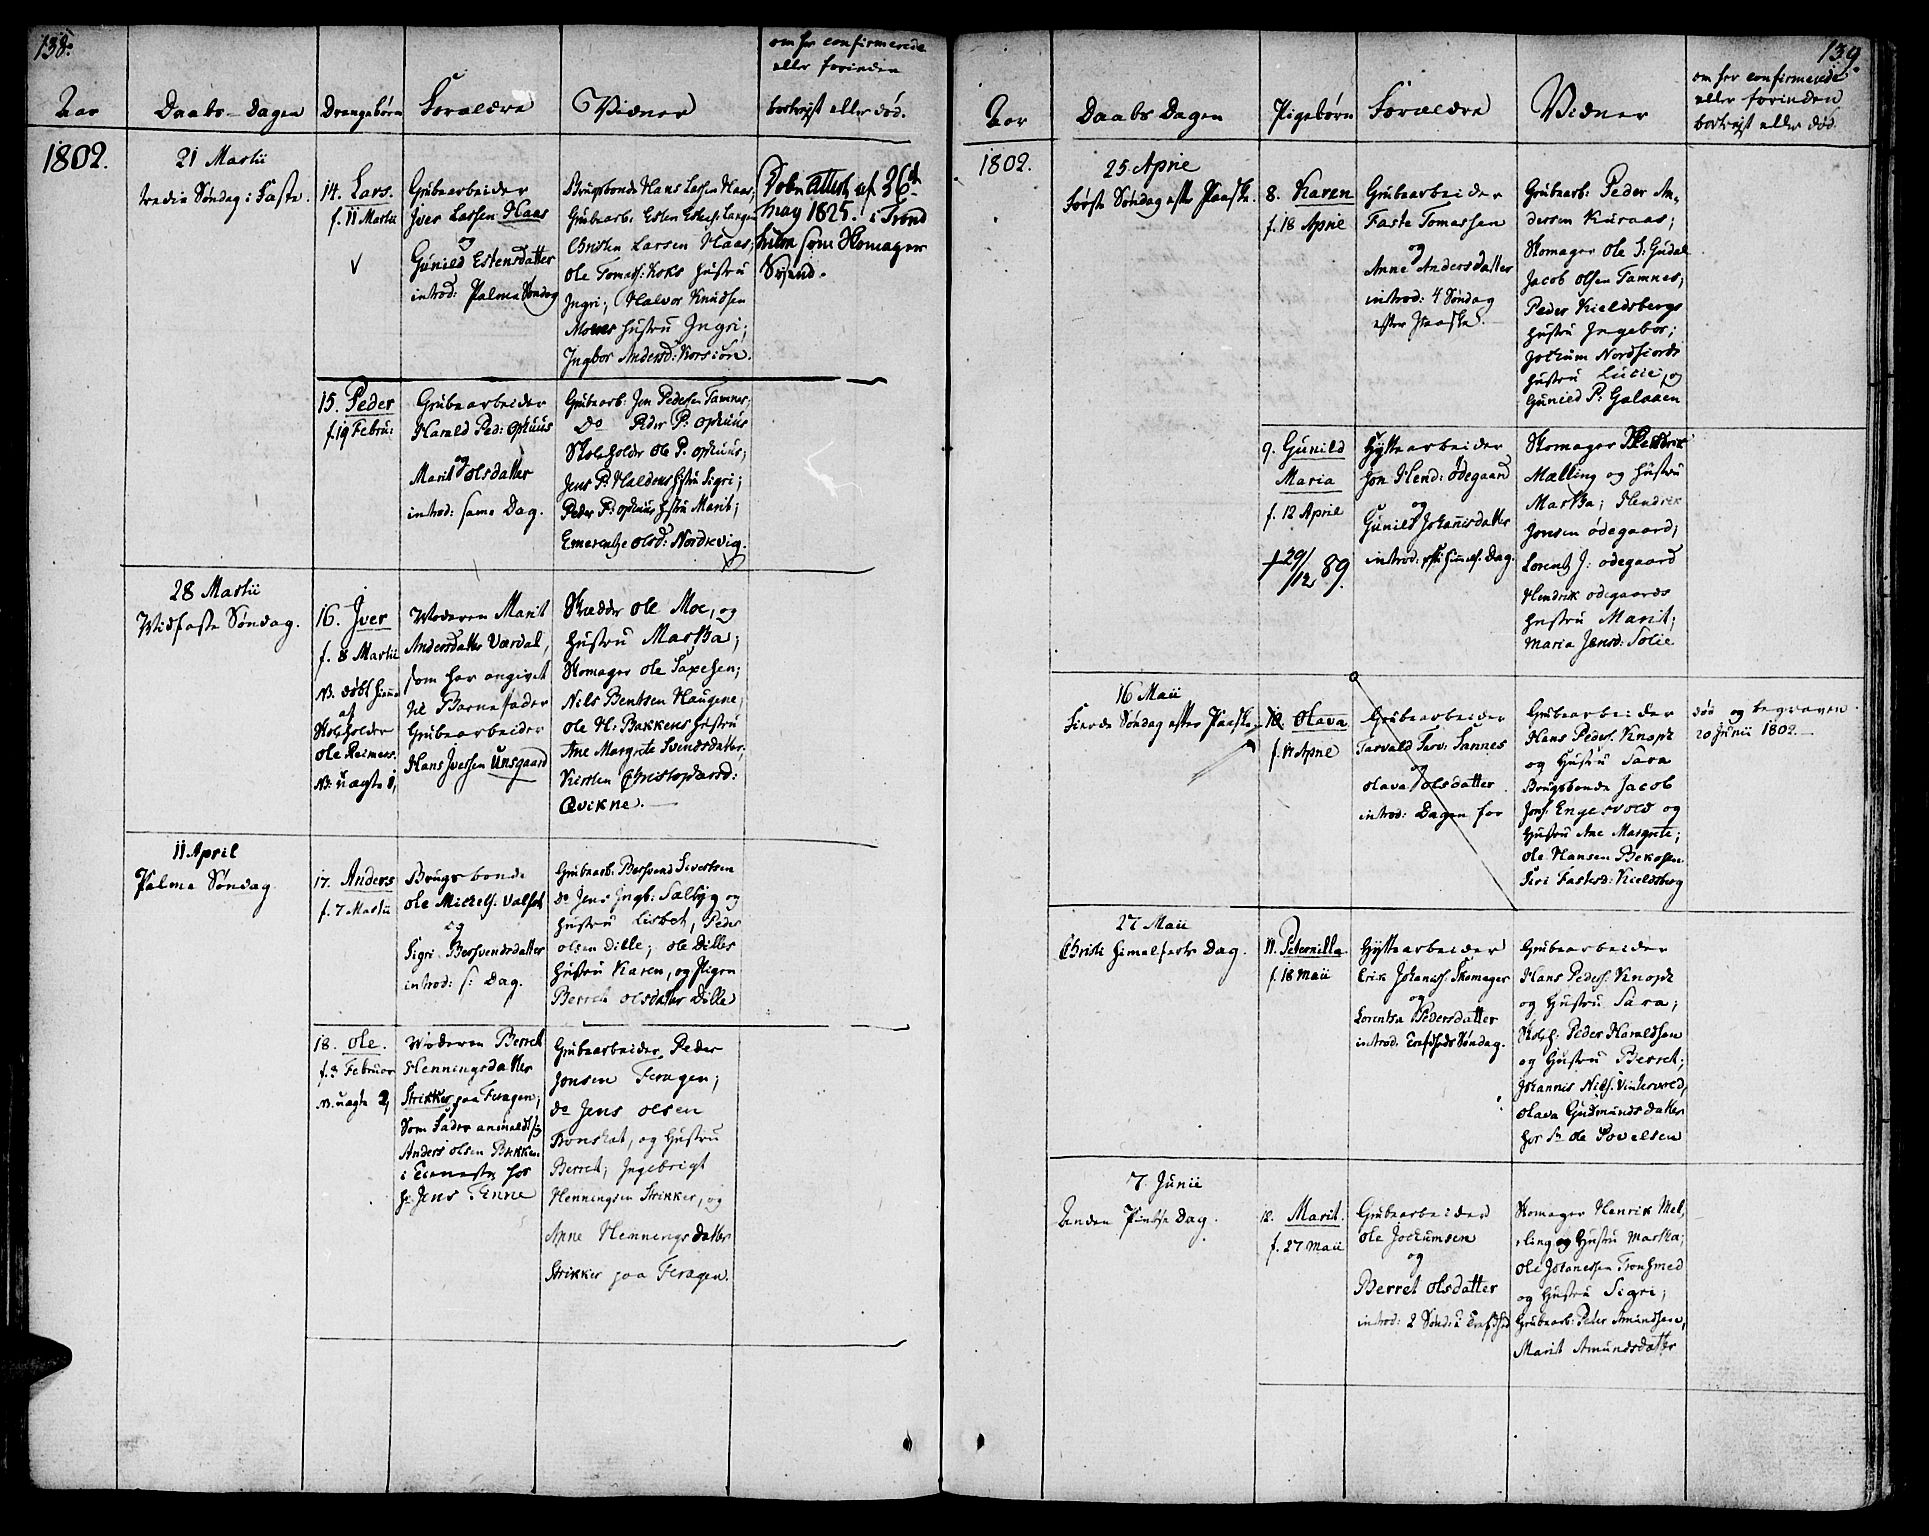 138.
Aar
Daabs-Dagen
Drengebørn
Forældre
Vidner
om her confirmerede
eller forinden
bortreist eller død.
1802.
21 Martii
tredie Søndag i Faste.
14. Lars.
f. 11 Martii
Grubearbeider
Jver Larsen Haas
og
Gunild Estensdatter
introd: Palme Søndag
Brugsbonde Hans Larsen Haas,
Grubearb: Esten Estens: Langen
Christen Larsen Haas;
Ole Tomas: Koks Hustru
Jngri; Halvor Knudsen
Moens Hustru Jngri;
Jngbor Andersd: Korsiøn.
af 26d
May 1825. i Trond
hiem som Skomager
Svend.
15. Peder
f. 19 Febru:
Grubearbeider
Harald Ped: Ophuus
og
Marit Olsdatter
introd: same Dag.
Grubearb: Jon Pedersen Tamnes,
Do Peder P: Ophuus
Skoleholder Ole P: Ophuus;
Jens P: Haldens Hstru Sigri;
Peder P: Ophuus Hstru Marit;
Emerentze Olsd: Nordevig.
28 Martii
Midfaste Søndag.
16. Jver
f. 8 Martii
NB. døbt hiemme
af
Skoleholder
Ole Reimers.
NB. uægte 1,
Moderen Marit
Andersdatter Værdal,
som har angivet
til Barnefader
Grubearbeider
Hans Jversen Unsgaard
Skrædder Ole Moe, og
Hustru Martha;
Skomager Ole Saxesen;
Nils Bentsen Haugene,
Ole H: Bakkens Hustru
Ane Margrete Svendsdatter,
Kirsten Christophersd:
Qvikne.
11 April
Palme Søndag
17. Anders
f. 7 Martii
Brugsbonde
Ole Mickels: Valset
og
Sigri Bersvendsdatter
introd: s: Dag.
Grubearb: Bersvend Sivertsen
do Jens Jngb: Sælbyg og
Hustru Lisbet, Peder
Olsen Dille; Ole Dilles
Hustru Karen, og Pigen
Berret Olsdatter Dille
18. Ole.
f. 3 Februar
NB. uægte 2,
Moderen Berret
Henningsdatter
Strikker paa Feragen;
Som Fader anmeldtes
Anders Olsen Bakken
i Tieneste hos
Hr: Jens Finne
Grubearbeider Peder
Jonsen Feragen;
do Jens Olsen
Tronshat, og Hustru
Berret; Jngebrigt
Henningsen Strikker, og
Anne Hennings datter
Strikker paa Feragen.
139.
Aar
Daabs Dagen
Pigebørn
Forældre
Vidner
om her confirmerede
eller forinden
bortreist eller død.
1802.
25 April
første Søndag efter Paaske.
8. Karen
f. 18 April
Grubearbeider
Faste Tomassen
og
Anne Andersdatter
introd: 4 Søndag
efter Paaske.
Grubearb: Peder An-
dersen Kuraas;
Skomager Ole S: Gudal
Jacob Olsen Tamnes;
Peder Kieldsbergs
Hustru Jngebor;
Jochum Nordfiords
Hustru Lucie, og
Gunild P: Galaaen
9. Gunild
Maria
f. 12 April
+ 29/12 89.
Hytte arbeider
Jon Hend: Ødegaard
og
Gunild Johannisdatter
introd: Chri: himelf. Dag.
Skomager Hendrik
Mælling og Hustru
Martha; Hendrik
Jonsen Ødegaard;
Lorentz J: Ødegaard
Hendrik Ødegaards
Hustru Marit;
Maria Jensd: Solie
16 Maii
Fierde Søndag efter Paaske.
10. Olava
f. 11 April
Grubearbeider
Tarvald Tarv: Sannes
og
Olava Olsdatter
introd: Dagen for
Grubearbeider
Hans Peders: Knoph
og Hustru Sara
Brugsbonde Jacob
Jons: Engesvold og
Hustru Ane Margrete;
Ole Hansen Bekosen
Siri Fastesd: Kieldsberg
død og begraven
20 Junii 1802.
27 Maii
Christi Himelfarts Dag.
11. Peternilla
f. 18 Maii
Hyttearbeider
Erik Johaniss: Skomager
og
Lorentza Pedersdatter
introd. Trefheds Søndag.
Grubearbeider
Hans Peders: Knoph
og Hustru Sara;
Skoleh: Peder Haraldsen
og Hustru Berret;
Johannis Niels: Vintervold,
Olava Gudmunds datter
hos Sr Ole Povelsen
7. Junii
Anden Pintse Dag.
12. Marit.
f. 27 Maii
Grubearbeider
Ole Jochumsen
og
Berret Olsdatter
introd: 2 Sønd: e Trefhed
Skomager Henrik Mel-
ling og Hustru Martha;
Ole Johanessen Tronsmed
og Hustru Sigri;
Grubearb: Peder Amundsen,
Marit Amundsdatter